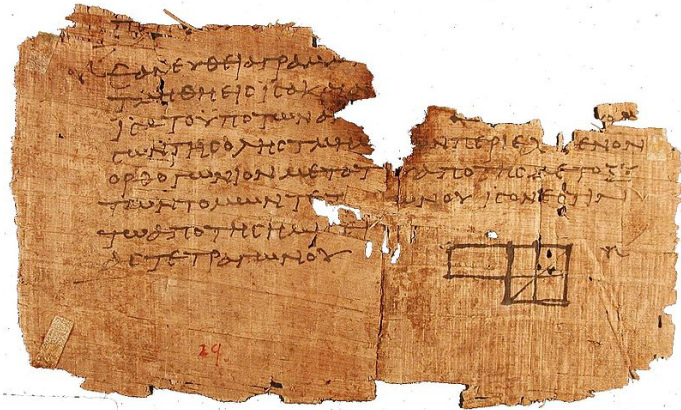 ΕΑΝΕΥΘΕΙΑΓΡΑΜ
ΤΜΗΘΗΕΙϹΙϹΑΚΑΙΑ
ΙϹΑΤΟΥΠΟΤΩΝΑ
ϹΩΝΤΗϹΟΛΗϹΤΜΗΜ ΩΝΠΕΡΙΕΧ ΜΕΝΟΝ
ΟΡΘΟΓΩΝΙΟΝΜΕΤΑΤ ΥΑΠΟΤΗϹΜΕΤΟΞΥ
ΤΩΝΤΟΜΩΝΤΕΤ ΩΝΟΥΙϹΟΝΕϹΤΙΝ
ΤΩΑΠΟΤΗϹΗΜΙϹΕΙ
ΤΕΤΡΑΓΩΝΟΥ
29